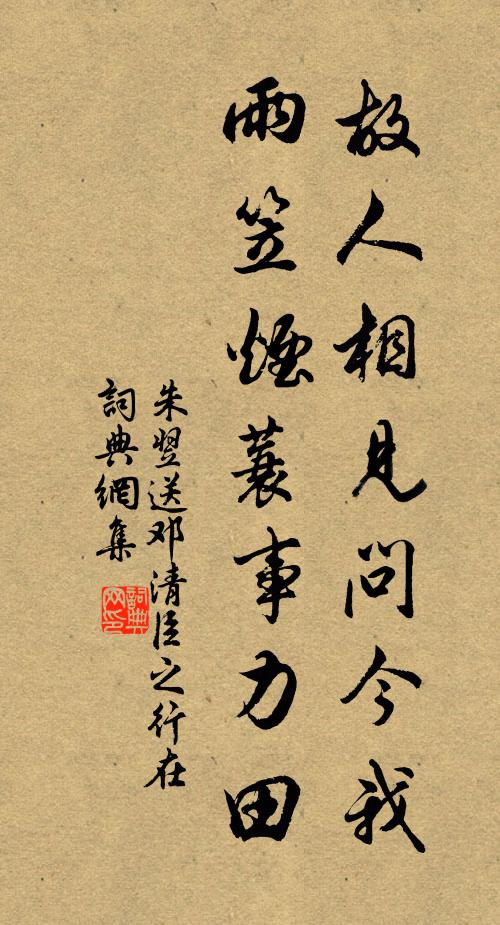 故人相見問今我
雨笠煙蓑事力田
朱翌送邓清臣之行在
詞典網集
詞典网印